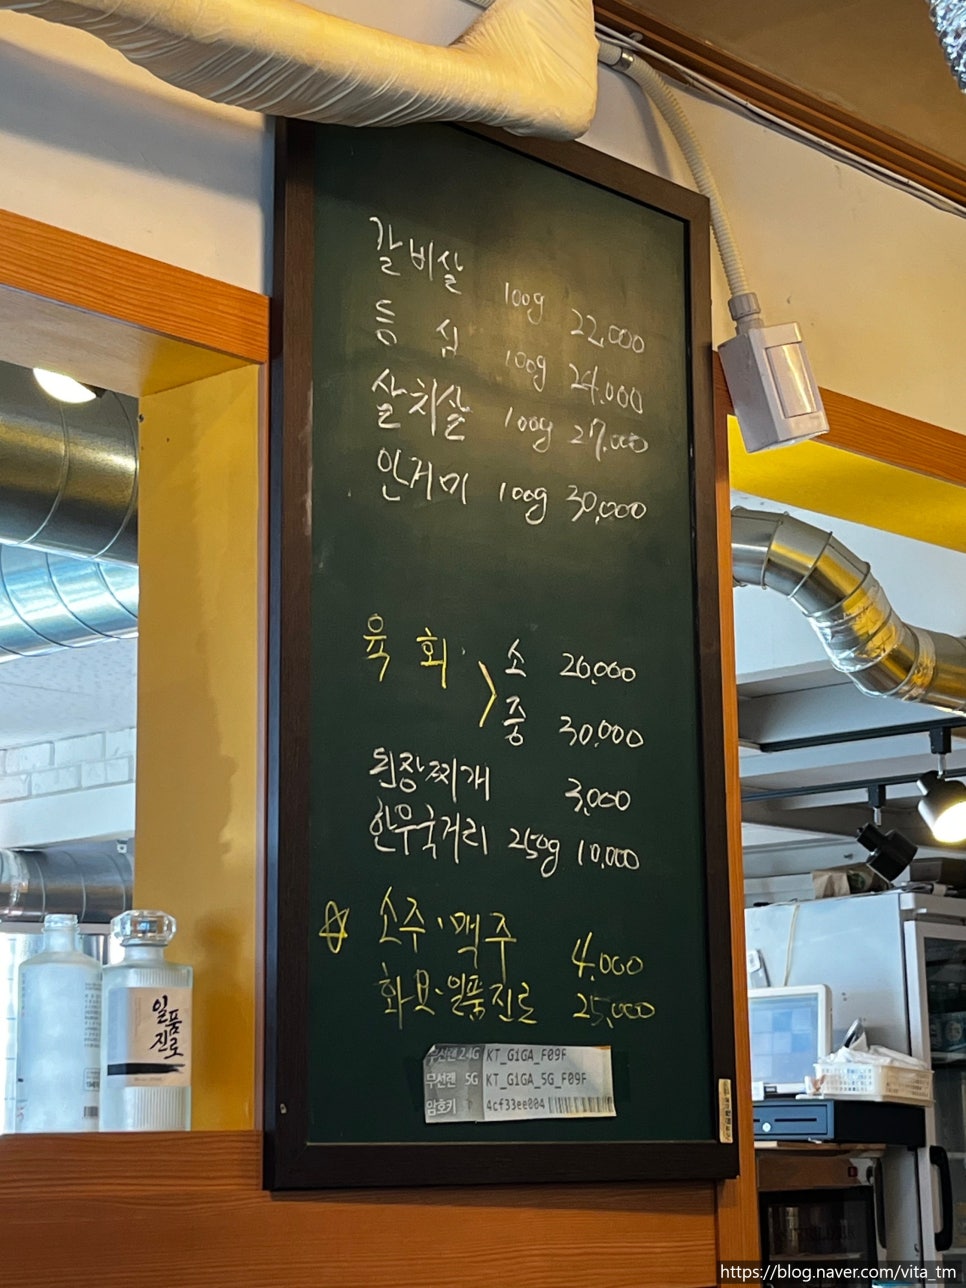 갈비살 100g 22,000
등 심 100g 24,000
살치살 100g 27,000
안거미 100g 30,000
육 회 소 20,000
중 30,000
된장찌개 3,000
한우국거리 250g 10,000
소주·맥주 4,000
화요·일품진로 25,000
무선랜 2.4G KT_GiGA_F09F
무선랜 5G KT_GiGA_5G_F09F
암호키 4cf33ee004
일품
진로
https://blog.naver.com/vita_tm